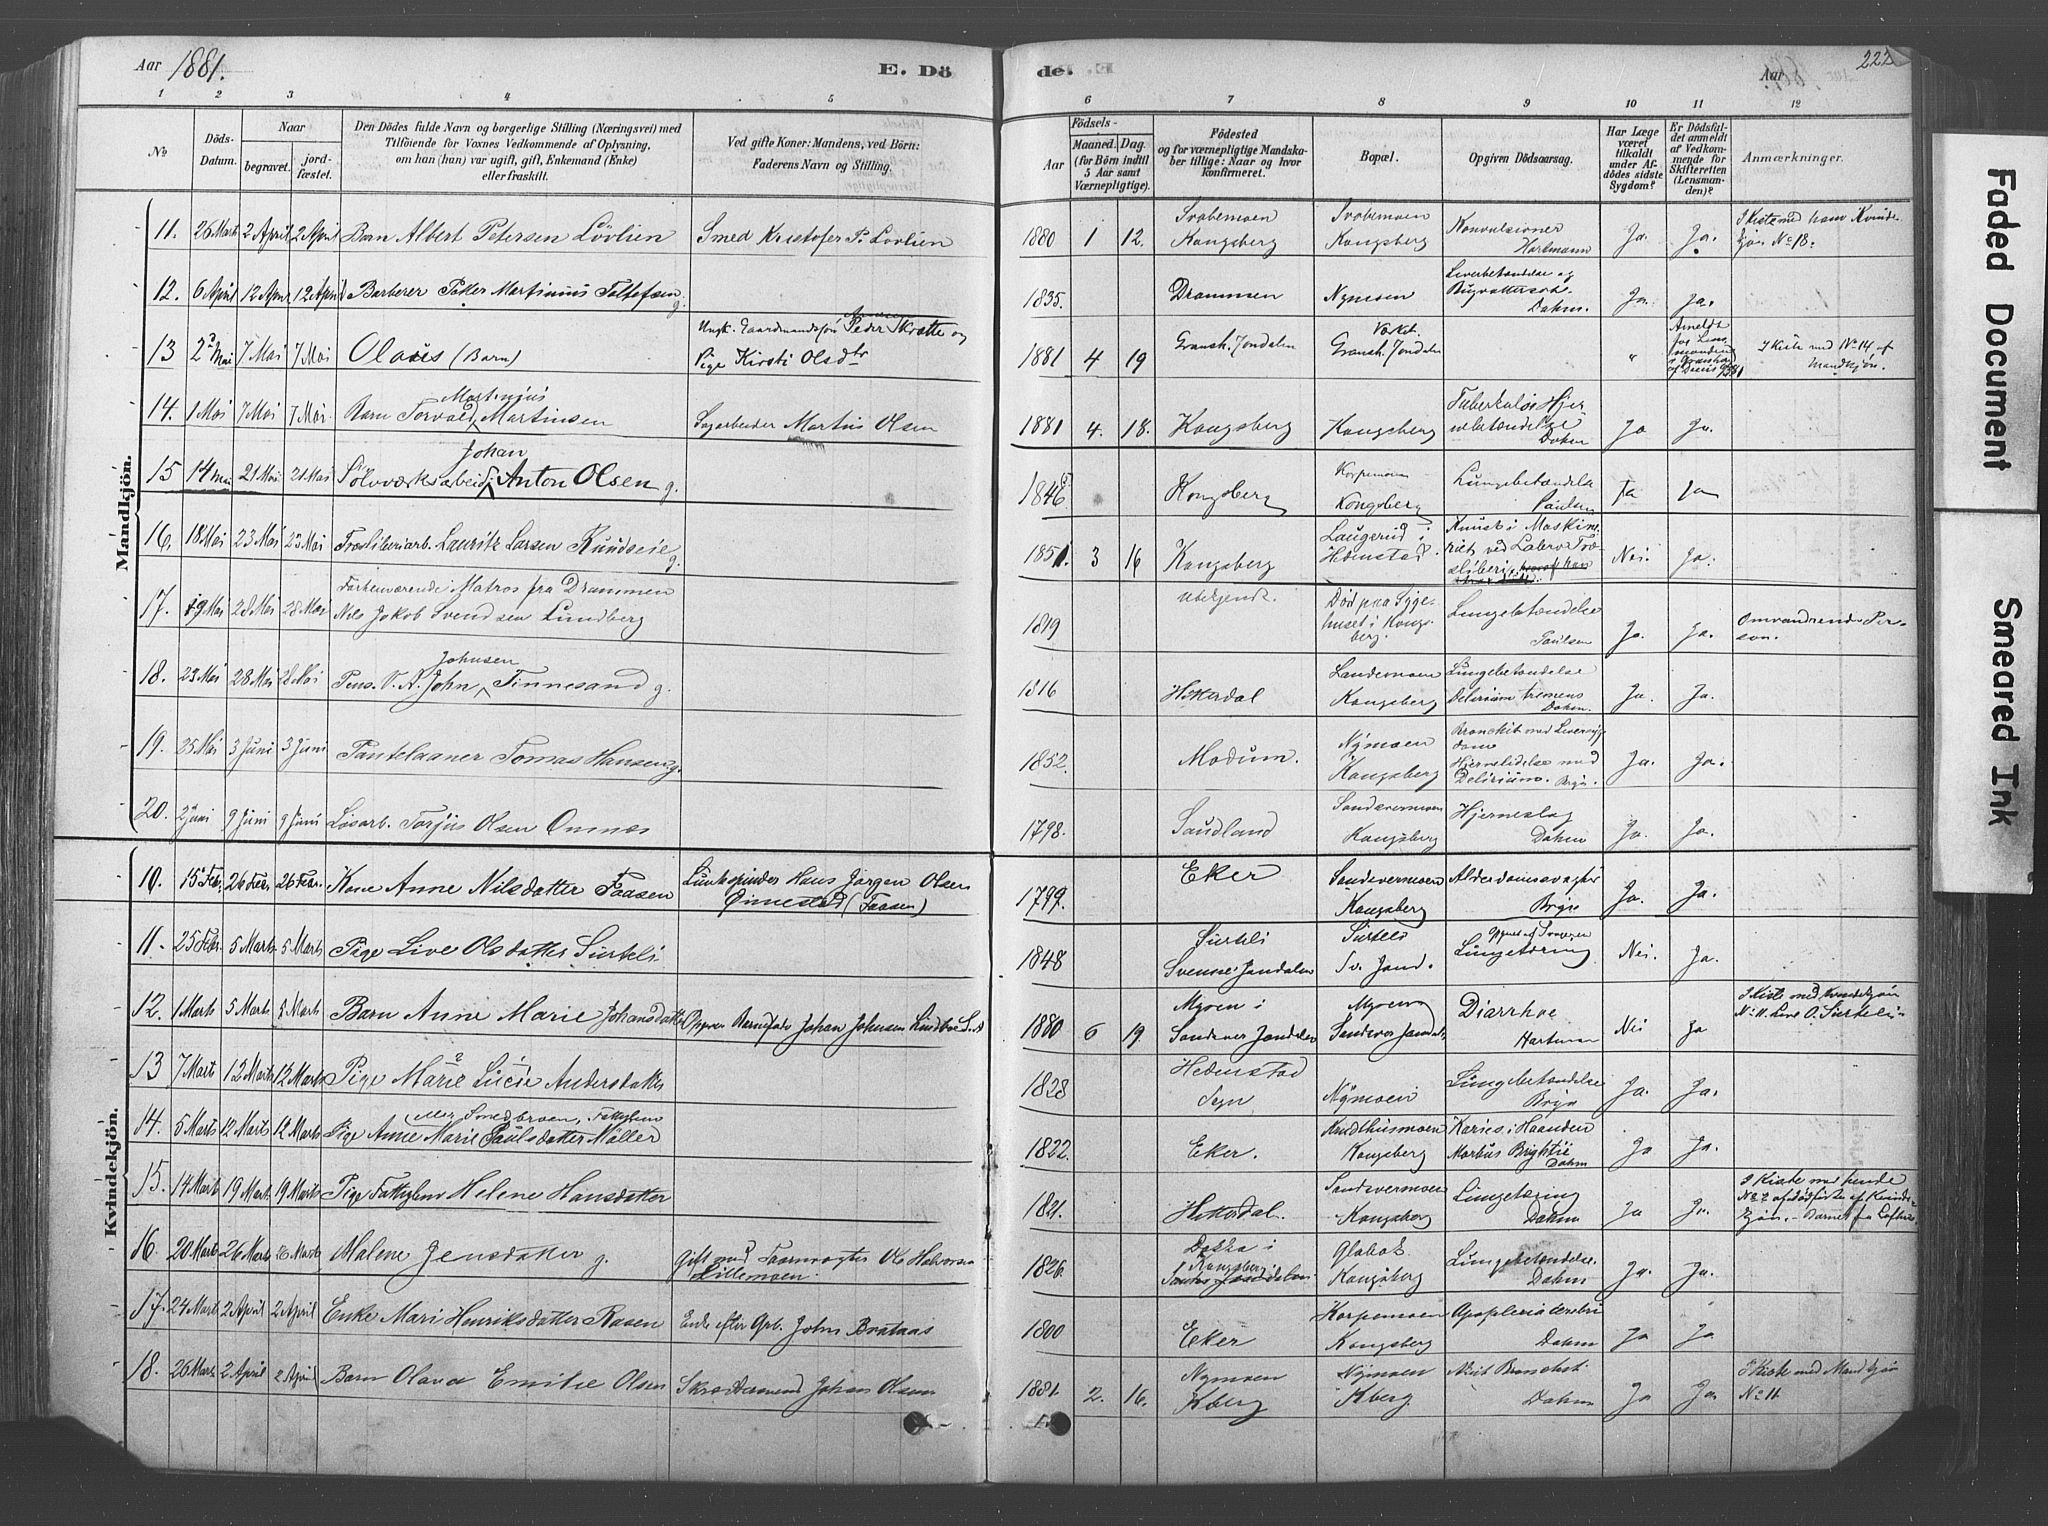 Aar 1881.
E. Döde.
Aar
222
1 2 3 4 5 6 7 8 9 10 11 12
No
Döds-Datum.
Naar
begravet.
jord-fæstet.
Den Dödes fulde Navn og borgerlige Stilling (Næringsvei) med
Tilföiende for Voxnes Vedkommende af Oplysning,
om han (hun) var ugift, gift, Enkemand (Enke)
eller fraskilt.
Ved gifte Koner: Mandens, ved Börn:
Faderens Navn og Stilling.
Födsels-
Aar
Maaned. Dag.
(for Börn indtil
5 Aar samt
Værnepligtige).
Födested
og for værnepligtige Mandska-
ber tillige: Naar og hvor
konfirmeret.
Bopæl.
Opgiven Dödsaarsag.
Har Læge
været
tilkaldt
under Af-
dödes sidste
Sygdom?
Er Dödsfal-
det anmeldt
af Vedkom-
mende for
Skifteretten
(Lensman-
den)?
Anmærkninger.
Mandkjön.
11. 26 Mart 2 April 2 April Barn Albert Petersen Lövlien Smed Kristofer P. Lövlien 1880 1 12. Kongsberg Kongsberg Konvulsioner Hartmann Ja. Ja. I Kiste med Kvindekjön No 18.
12. 6 April 12 April 12 April Barberer Peter Martinius Tollefsen g. 1835. Drammen Nymoen Leverbetændelse og Bugvattersot Dahm. Ja. Ja.
13 2 Mai 7 Mai 7 Mai Olaus (Barn) Ungk. Gaardmandssön Peder Skrætte og
Pige Kirsti Olsdtr 1881 4 19 Gransh. Jondalen Gransh. Jondalen " I Kiste med No 14 af Mandkjön.
14. 1 Mai 7 Mai 7 Mai Barn Torvald Martinius Martinsen Sagarbeider Martius Olsen 1881 4. 18. Kongsberg Kongsberg Tuberkulös Hjernebetændelse Dahm Ja Ja.
15 14 Mai 21 Mai 21 Mai Sölvværksarbeid. Johan Anton Olsen g. 1846 Kongsberg Korpemoen Kongsberg Lungebetændelse Paulsen Ja Ja
16. 18 Mai 23 Mai 23 Mai Træsliberiarb. Lauritz Larsen Rundseie g. 1851. 3 16 Kongsberg Laugerud i Hedenstad. Knust i Maskineriet ved Labro Træsliberi Nei. Ja.
17. 19 Mai 28 Mai 28 Mai Forhenværende Matros fra Drammen
Nils Jakob Svendsen Lundberg 1819 Ubekjendt. Död paa Sygehuset i Kongsberg. Lungebetændelse Paulsen Ja. Ja. Omvandrende Person.
18. 23 Mai 28 Mai 28 Mai Pens. V. A. John Johnsen Tinnesand g. 1816 Hitterdal Landemoen Kongsberg Lungebetændelse Delirium tremens Dahm. Ja. Ja.
19. 25 Mai 3 Juni 3 Juni Pantelaaner Tomas Hansen g. 1852. Modum. Nymoen Kongsberg Bronchit med Leversygdom Hjernelidelse med Delirium. Bryn. Ja. Ja.
20. 2 Juni 9 Juni 9 Juni Lösarb. Torjus Olsen Omnæs 1798. Saudland Sandsvermoen Kongsberg Hjerneslag Dahm Ja. Ja.
Kvindekjön.
10. 15 Febr. 26 Febr. 26 Febr. Kone Anne Nilsdatter Faasen Hans Jörgen Olsen
(Faasen) 1799. Eker Sandsvermoen Kongsberg Alderdomssvaghed Bryn Ja. Ja.
11. 25 Febr 5 Marts 5 Marts Pige Live Olsdatter Surteli 1848 Surteli Svensse Jondalen Surteli Sv. Jond. Lungetæring Nei. Ja.
12. 1 Marts 5 Marts 5 Marts Barn Anne Marie Johansdatter Opgiven Barnefader Johan Johnsen Lindboe 1880 6 19. Myren i Sandsver Jondalen Myren Sandsver Jondalen Diarrhoe Hartman Nei Ja I Kiste med Kvindekjön No 11. Live O. Surteli
13 7 Mart 12 Marts 12 Marts Pige Marie Lucie Andersdatter 1828 Hedenstad Sogn Nymoen Lungebetændelse Bryn Ja. Ja.
14. 5 Marts 12 Marts 12 Marts Pige Anne Marie Paulsdatter Möller 1822. Eker. Krudthusmoen Kongsberg Karies i Haanden Morbus Brightii Dahm Ja Ja.
15. 14 Mart 19 Mart. 19 Marts Pige Fattiglem Helene Hansdatter 1821. Hitterdal. Sandsvermoen Kongsberg Lungetæring Dahm Ja Ja. I Kiste med
16. 20 Marts 26 Marts 26 Marts Malene Jensdatter g. Gift med Ole Halvorsen
Lillemoen. 1826. Dokka i Kongsberg Glabak Kongsberg Lungebetændelse Dahm Ja. Ja.
17. 24 Marts 2 April 2 April Enke Mari Henriksdatter Raaen Enke efter Grb. John Brataas 1800 Eker Korpemoen Kongsberg Apoplexia cerebri Dahm Ja Ja
18. 26 Mart 2 April 2 April Barn Olava Emilie Olsen Skræddersvend Johan Olsen 1881. 2. 16. Nymoen Kberg Nymoen Kberg. Dahm Ja Ja. I Kiste med Mandkjön No 11.
Faded Document
Smeared Ink